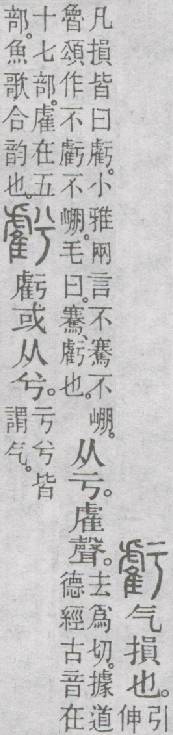 虧气損也。引
伸
凡損皆曰虧。小雅兩言不騫不崩。
魯頌作不虧不崩。毛曰。騫、虧也。
从亏。雐聲。
去爲切。據道
德經古音在
十七部。雐在五
部。魚歌合韵也。
𧇾虧或从兮。
亏兮皆
謂气。